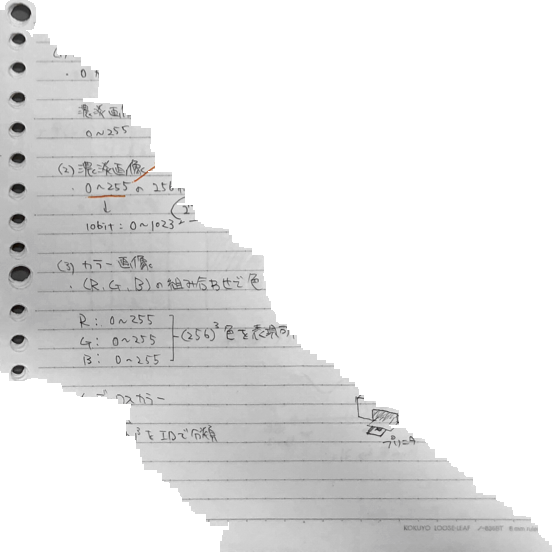 ・0
濃淡画
0~255
(2) 濃淡画像
・0~255の256
↓
10bit: 0~1023
(3) カラー画像
・(R, G, B)の組み合わせで色
R: 0~255
G: 0~255
B: 0~255
(256)³色を表現可
カラー
をIDで分類
プリンタ
KOKUYO LOOSE-LEAF